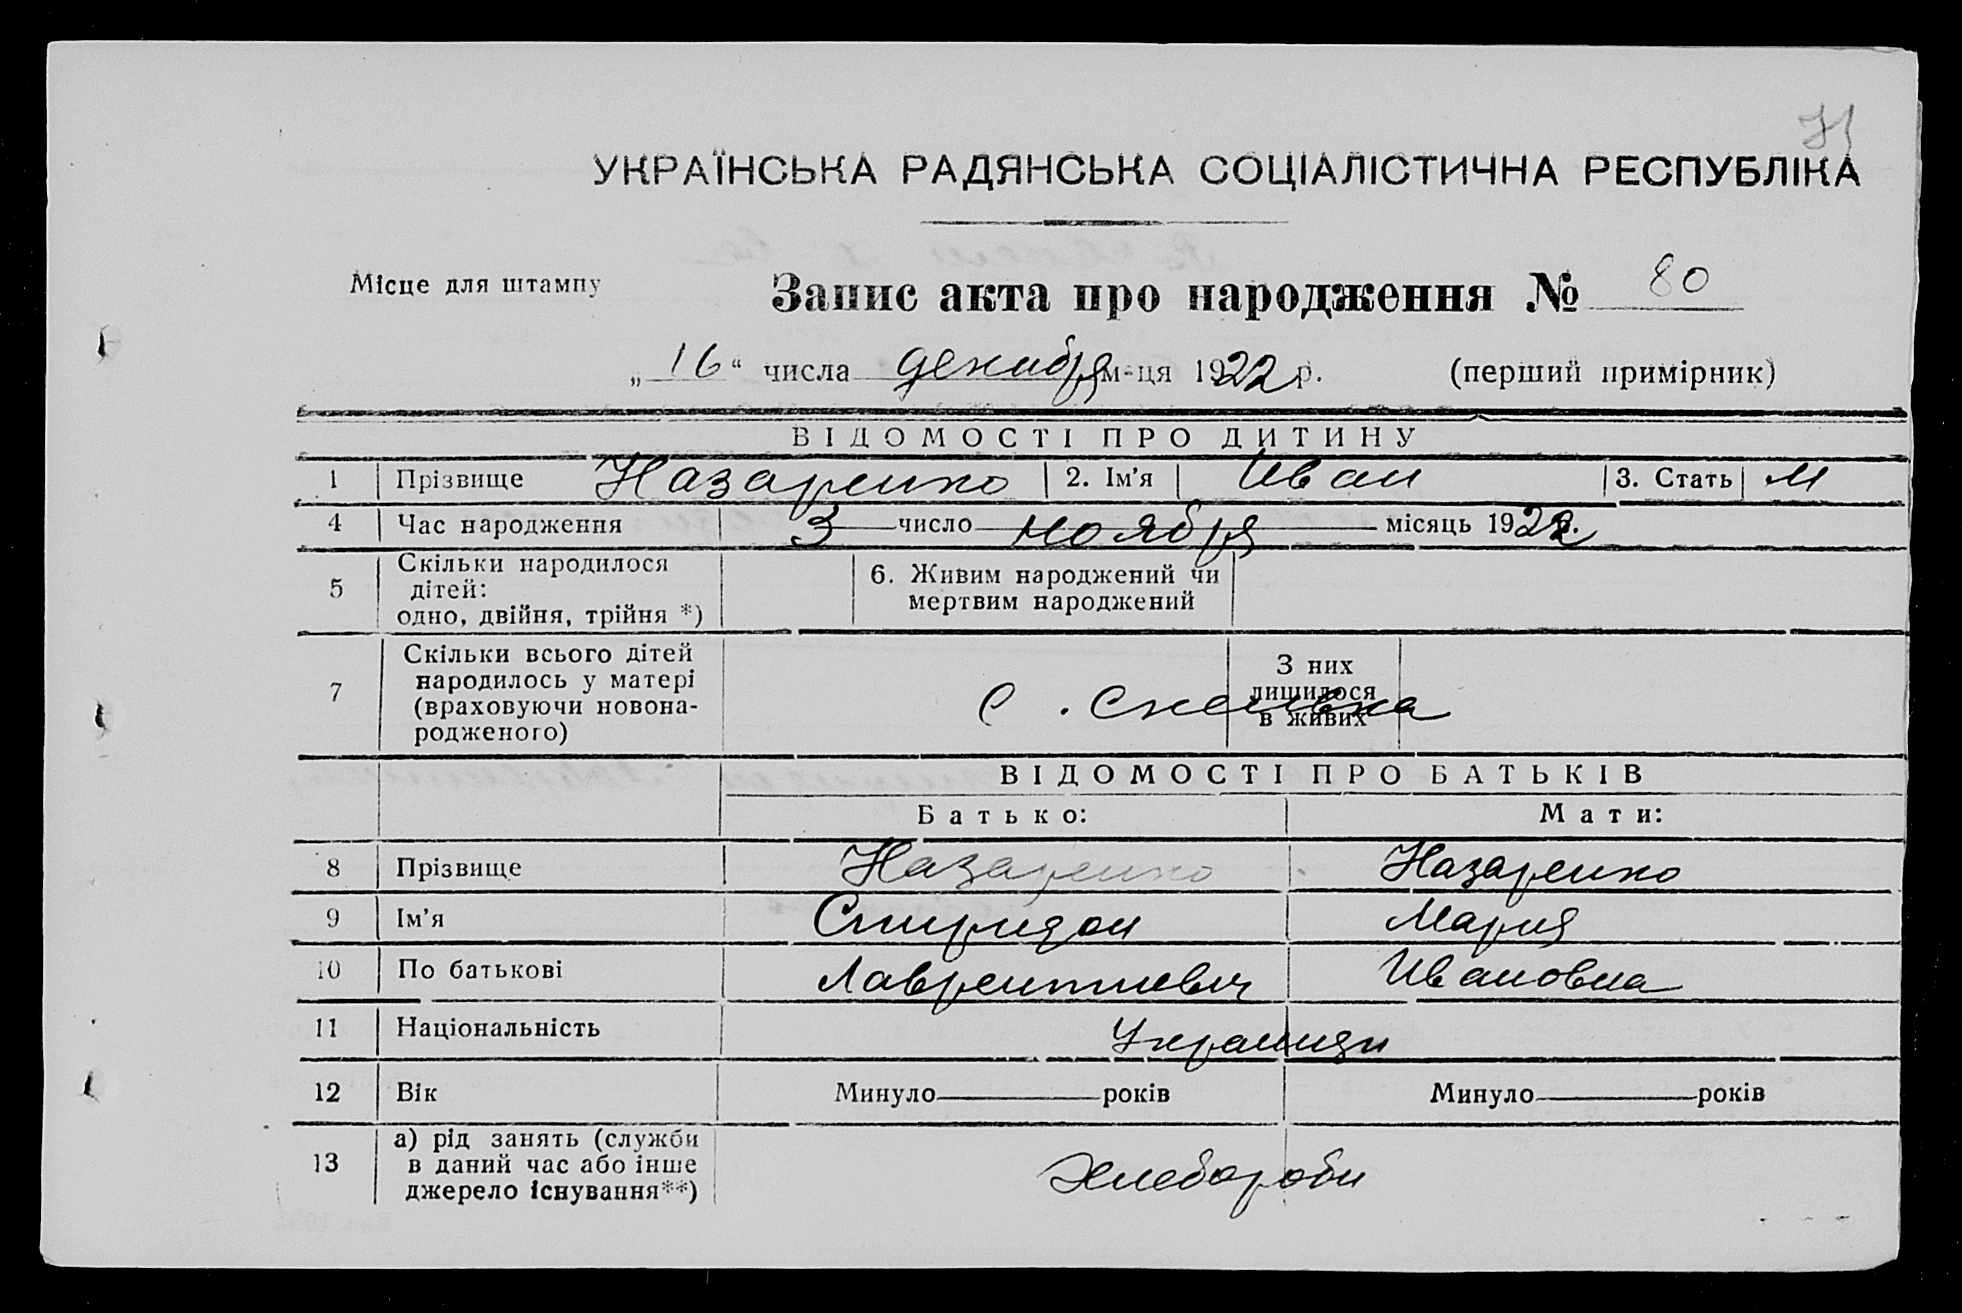 71
УКРАЇНСЬКА РАДЯНСЬКА СОЦІАЛІСТИЧНА РЕСПУБЛІКА
Місце для штампу
Запис акта про народження № 80
„16“ числа декабря м-ця 1922 р. (перший примірник)
ВІДОМОСТІ ПРО ДИТИНУ
1 Прізвище Назаренко 2. Ім'я Иван 3. Стать М
4 Час народження 3 число ноября місяць 1922 р.
5 Скільки народилося
дітей:
одно, двійня, трійня *)
6. Живим народжений чи
мертвим народжений
7 Скільки всього дітей
народилось у матері
(враховуючи новона-
родженого)
З них
лишилося
в живих
с. Скелька
ВІДОМОСТІ ПРО БАТЬКІВ
Батько: Мати:
8 Прізвище Назаренко Назаренко
9 Ім'я Спиридон Мария
10 По батькові Лаврентиевич Ивановна
11 Національність Украинци
12 Вік Минуло років Минуло років
13 а) рід занять (служби
в даний час або інше
джерело існування**)
Хлебороби